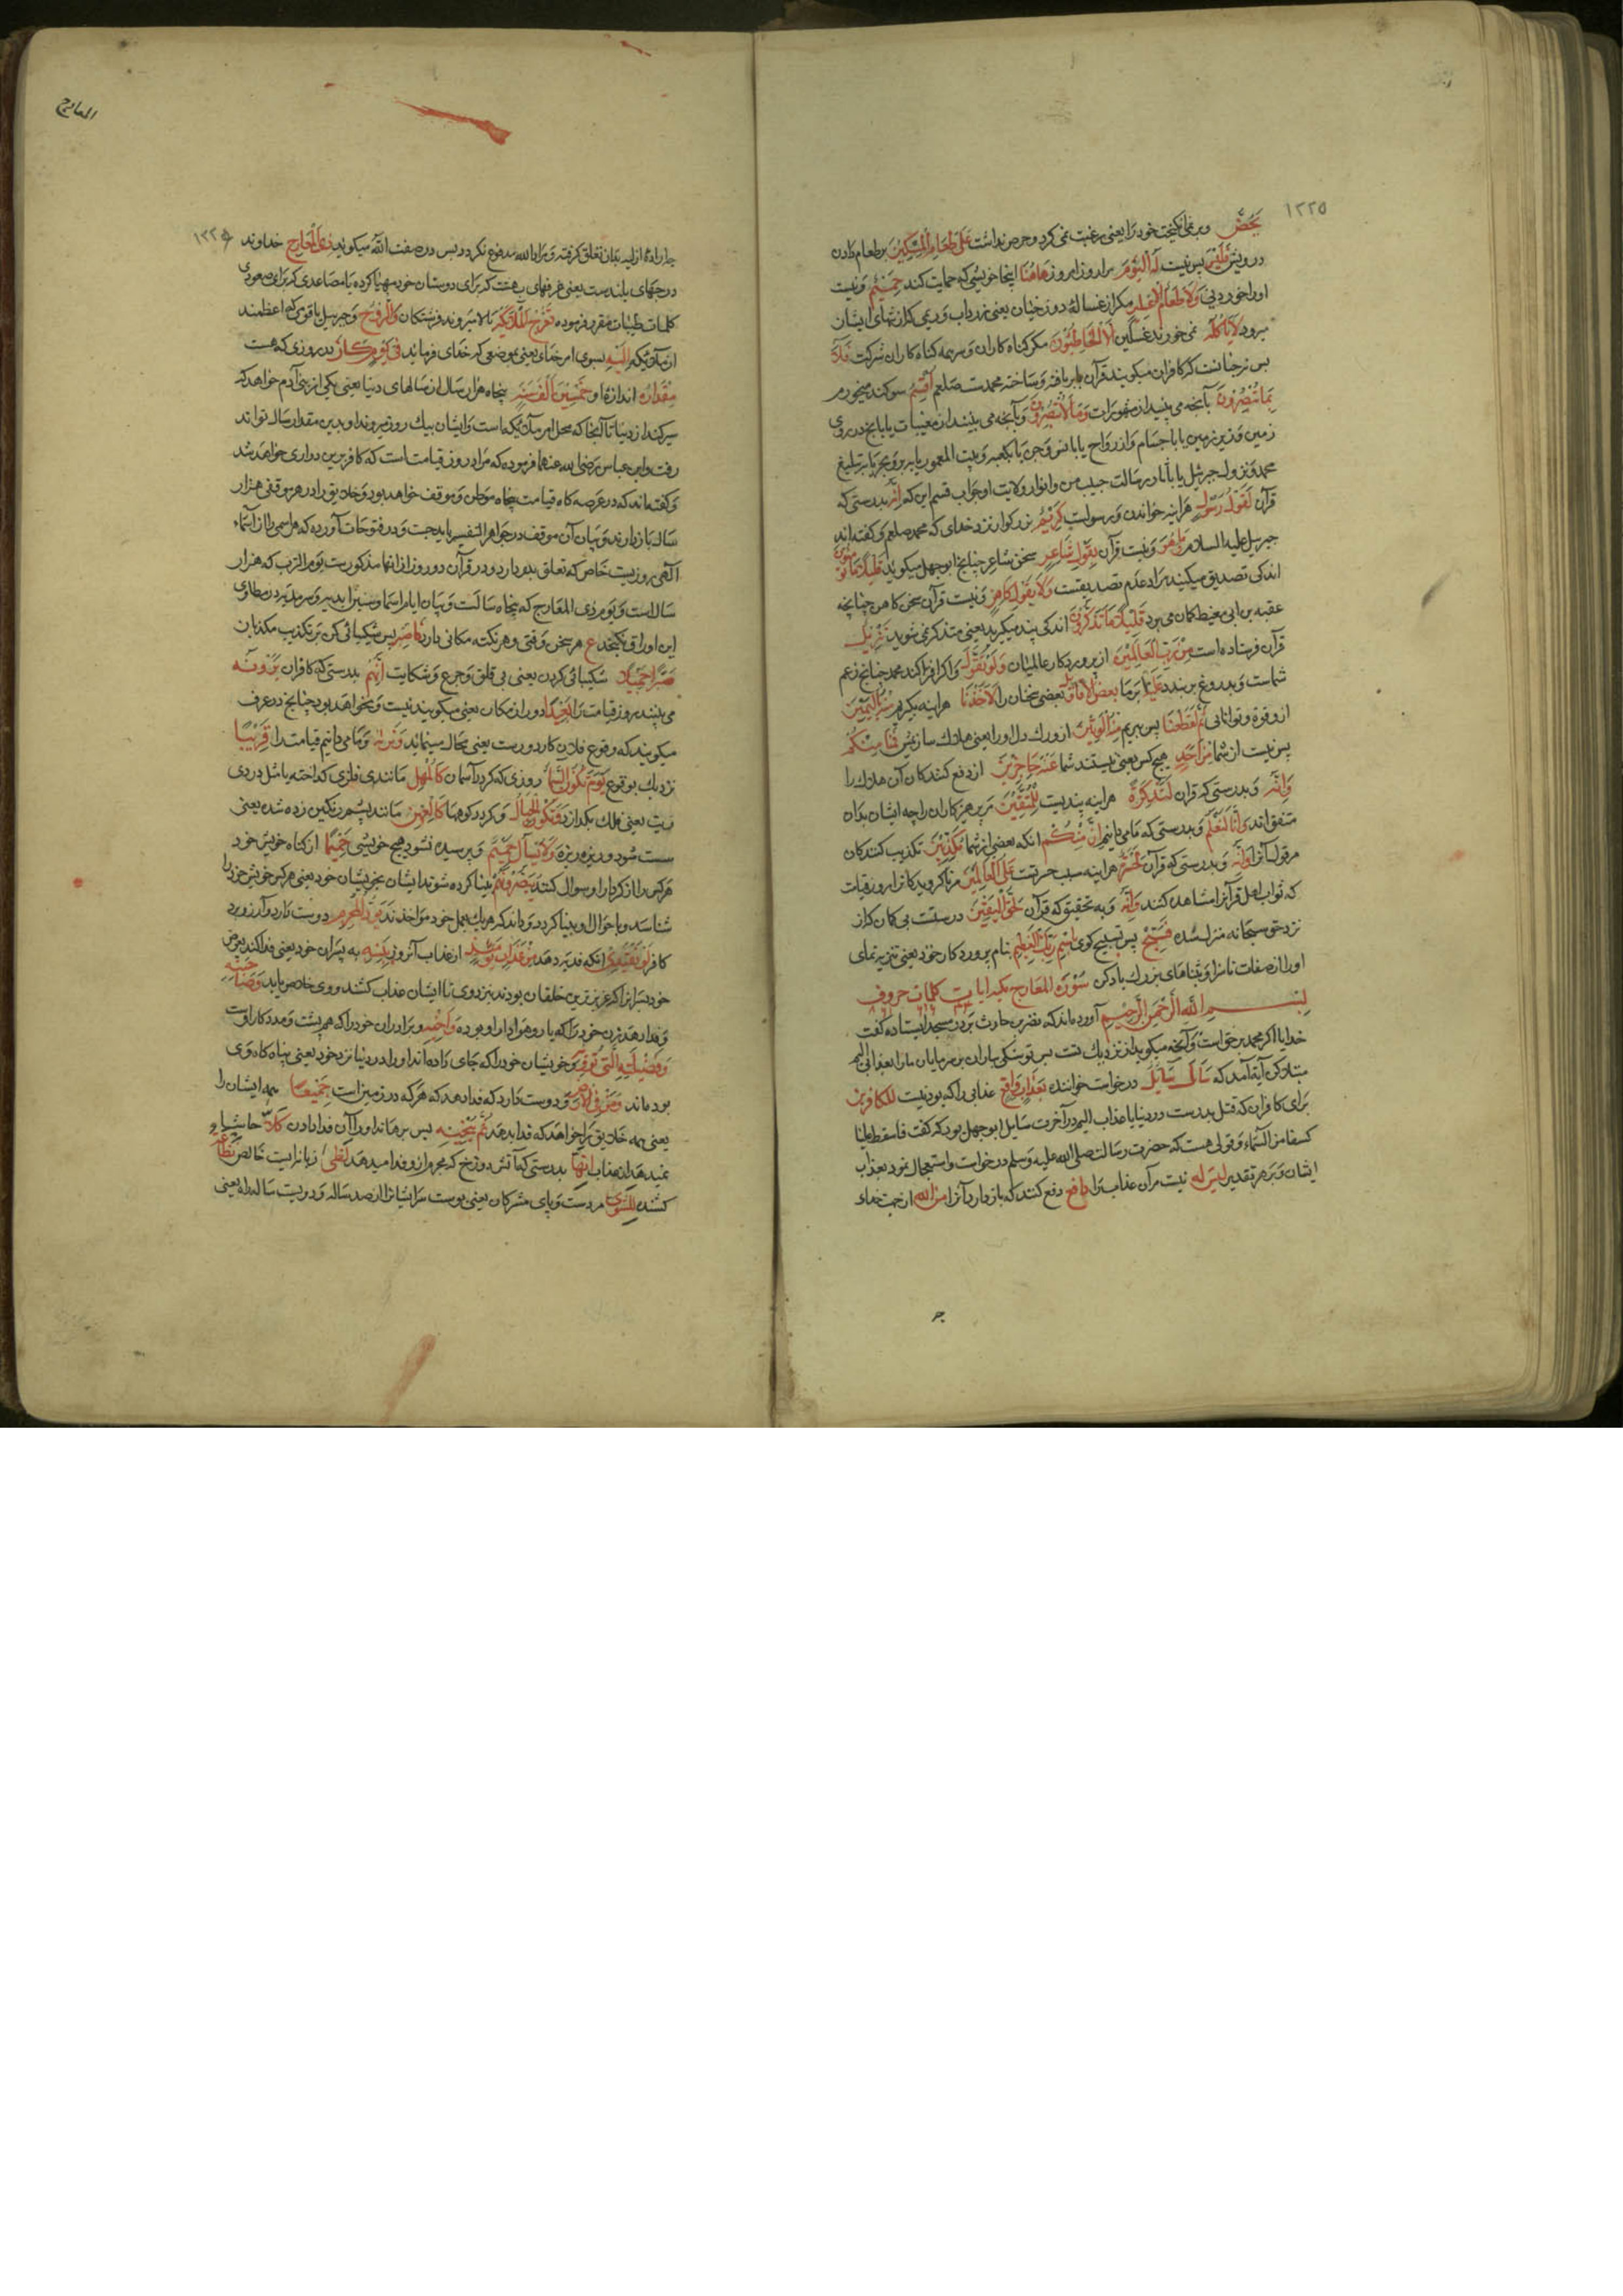 ١٢٢٥
يَحُضُّ وبر نمی انگیخت خود را یعنی رغبت نمی کرد و حرص نداشت عَلَىٰ طَعَامِ الْمِسْكِينِ بر طعام دادن
درویش فَلَيْسَ پس نیست لَهُ الْيَوْمَ مر او را امروز هَاهُنَا اینجا خویشی که حمایت کند حَمِيمٌ و نیست
او را خوردنی وَلَا طَعَامٌ إِلَّا مِنْ غِسْلِينٍ مکر از غساله دوزخیان یعنی زرداب و ریمی که از تنهای ایشان
میرود لَا يَأْكُلُهُ نمی خورند غسلین إِلَّا الْخَاطِئُونَ مکر کناه کاران و سرهمه کناه کاران شرکت فَلَا
پس نه چنانست که کافران میکویند قرآن بربافته و ساخته محمدست صلعم أُقْسِمُ سوکند میخورم
بِمَا تُبْصِرُونَ بآنچه می بینید از مشهورات وَمَا لَا تُبْصِرُونَ وبآنچه می بینید از مغیبات یا بآنچه در روی
زمین و زیر زمین یا باجسام و ارواح یا بانس و جن یا بکعبه و بیت المعمور یا ببر و بحر یا بتبلیغ
محمد و نزول جبرئیل یا بآثار رسالت حبیب من و انوار ولایت او جواب قسم این که إِنَّهُ بدرستی که
قرآن لَقَوْلُ رَسُولٍ هر آینه خواندن و رسولست كَرِيمٍ بزرکوار نزد خدای که محمد صلعم و کفته اند
جبرئیل علیه السلام وَمَا هُوَ ونیست قرآن بِقَوْلِ شَاعِرٍ سخن شاعر چنانچه ابوجهل میکوید قَلِيلًا مَا تُؤْمِنُونَ
اندکی تصدیق میکنید مراد عدم تصدیقست وَلَا بِقَوْلِ كَاهِنٍ ونیست قرآن سخن کاهن چنانچه
عقبه بن ابی معیط کمان می برد قَلِيلًا مَا تَذَكَّرُونَ اندکی پند میکیرید یعنی متذکر نمی شوید تَنْزِيلٌ
قرآن فرستاده است مِنْ رَبِّ الْعَالَمِينَ از پروردکار عالمیان وَلَوْ تَقَوَّلَ واکر افترا کند محمد چنانچه زعم
شماست و بدروغ بربندد عَلَيْنَا بر ما بَعْضَ الْأَقَاوِيلِ بعضی سخنان را لَأَخَذْنَا هر آینه بکیریم مِنْهُ بِالْيَمِينِ
از و قوة و توانایی ثُمَّ لَقَطَعْنَا پس ببریم مِنْهُ الْوَتِينَ از و رک دل او را یعنی هلاک سازیمش فَمَا مِنْكُمْ
پس نیست از شما مِنْ أَحَدٍ هیچ کس یعنی نیستند شما عَنْهُ حَاجِزِينَ از و دفع کنندکان آن هلاک را
وَإِنَّهُ وبدرستی که قرآن لَتَذْكِرَةٌ هر آینه پندیست لِلْمُتَّقِينَ مر پرهیزکاران را چه ایشان بدان
متفع اند وَإِنَّا لَنَعْلَمُ وبدرستی که ما می دانیم أَنَّ مِنْكُمْ انکه بعضی از شما مُكَذِّبِينَ تکذیب کنندکان
مر قرآنرا وَإِنَّهُ وبدرستی که قرآن لَحَسْرَةٌ هر آینه سبب حسرتست عَلَى الْكَافِرِينَ مر ناکرویدکانرا روز قیامت
که ثواب اهل قرآنرا مشاهده کنند وَإِنَّهُ وبه تحقیق که قرآن لَحَقُّ الْيَقِينِ درستست بی کمان که از
نزد حق سبحانه منزل شده فَسَبِّحْ پس تسبیح کوی بِاسْمِ رَبِّكَ الْعَظِيمِ بنام پروردکار خود یعنی تنزیه نمای
او را از صفات ناسزا و بثناهای بزرک یاد کن سُوْرَة المعارج مکیه آیات کلمات حروف
بِسْمِ اللهِ الرَّحْمٰنِ الرَّحِيمِ آورده اند که نضر بن حارث بر در مسجد ایستاده کفت
خدایا اکر محمد بر حق است و آنچه میکوید از نزدیک تست پس تو سنک باران بر سر ما باران ما را بعذابی الیم
مبتلا کن آیه آمد که سَأَلَ سَائِلٌ درخواست خواننده بِعَذَابٍ وَاقِعٍ عذابی را که بودنیست لِلْكَافِرِينَ
برای کافران که قتل بدرست در دنیا یا عذاب الیم در آخرت سایل ابوجهل بود که کفت فاسقط علینا
کسفا من السماء و قولی هست که حضرت رسالت صلی الله علیه وسلم درخواست و استعجال نمود بعذاب
ایشان و بر هر تقدیر لَيْسَ لَهُ نیست مر آن عذاب را دَافِعٌ دفع کننده که بازدارد آنرا مِنَ اللهِ از جهت خدای
المعارج
١٢٢٦
چه اراده ازلیه بتان تعلق کرفته و مراد الله مدفوع نکردد پس در صفت الله میکوید ذِي الْمَعَارِجِ خداوند
درجهای بلندست یعنی غرفهای بهشت که برای دوستان خود مهیا کرده یا مصاعدی که برای صعود
کلمات طیبات مقرر فرموده تَعْرُجُ الْمَلَائِكَةُ بالا میروند فرشتکان وَالرُّوحُ وجبرئیل یا قومی که اعظمند
از ملائکه إِلَيْهِ بسوی امر خدای یعنی بموضعی که خدای فرماید فِي يَوْمٍ كَانَ در روزی که هست
مِقْدَارُهُ اندازهٔ او خَمْسِينَ أَلْفَ سَنَةٍ پنجاه هزار سال از سالهای دنیا یعنی یکی از بنی آدم خواهد که
سیر کند از دنیا تا آنجا که محل امر ملائکه است و ایشان بیک روز میروند او بدین مقدار سال تواند
رفت و ابن عباس رضی الله عنهما فرموده که مراد روز قیامت است که کافر برین دواری خواهد شد
و کفته اند که در عرصه کاه قیامت پنجاه موطن و موقف خواهد بود و خلایق را در هر موقفی هزار
سال بازدارند و بیان آن موقف در جواهر التفسیر باید جست و در فتوحات آورده که هر اسمی را از اسماء
الهی روزیست خاص که تعلق بدو دارد و در قرآن دو روز از آنها مذکورست یوم الرب که هزار
سالست و یوم ذی المعارج که پنجاه سالست و بیان ایام اسما و سنین ابدیه و سرمدیه در مطاوی
این اوراق نکنجد ع هر سخن وقتی و هر نکته مکانی دارد فَاصْبِرْ پس شکیبائی کن بر تکذیب مکذبان
صَبْرًا جَمِيلًا شکیبائی کردن یعنی بی قلق و جزع و شکایت إِنَّهُمْ بدرستی که کافران يَرَوْنَهُ
می بینند روز قیامت را بَعِيدًا دور از مکان یعنی میکویند نیست و نخواهد بود چنانچه در عرف
میکویند که وقوع فلان کار دورست یعنی محال مینماید وَنَرَاهُ وما می دانیم قیامت را قَرِيبًا
نزدیک بوقوع يَوْمَ تَكُونُ السَّمَاءُ روزی که کردد آسمان كَالْمُهْلِ مانندی فلزی کداخته یا مثل دردی
زیت یعنی فلک بکدازد وَتَكُونُ الْجِبَالُ وکردد کوهها كَالْعِهْنِ مانند پشم رنکین زده شده یعنی
سست شود و ریزه ریزه وَلَا يَسْأَلُ حَمِيمٌ وپرسیده نشود هیچ خویشی حَمِيمًا از کناه خویش خود
هر کس را از کردار او سوال کنند يُبَصَّرُونَهُمْ بینا کرده شوند ایشان بخویشان خود یعنی هر کس خویش خود را
شناسد و باحوال او بینا کردد و داند که هر یک بعمل خود مواخذند يَوَدُّ الْمُجْرِمُ دوست دارد و آرزو برد
کافر لَوْ يَفْتَدِي انکه فدیه دهد مِنْ عَذَابِ يَوْمِئِذٍ از عذاب آنروز بِبَنِيهِ به پسران خود یعنی فدا کند بعوض
خود پسرانرا که عزیزترین خلقان بودند نزد وی تا ایشان عذاب کشند و وی خلاص یابد وَصَاحِبَتِهِ
وفدا دهد زن خود را که یار و هوادار او بوده وَأَخِيهِ وبرادران خود را که هم پشت و مددکار اوست
وَفَصِيلَتِهِ الَّتِي تُؤْوِيهِ وخویشان خود را که جای داده اند او را در دنیا نزد خود یعنی پناه کاه وی
بوده اند وَمَنْ فِي الْأَرْضِ ودوست دارد که فدا دهد که هر که در زمین است جَمِيعًا همه ایشان را
یعنی همه خلایق را خواهد که فدا بدهد ثُمَّ يُنْجِيهِ پس برهاند او را آن فدا دادن كَلَّا حاشا و
نمیدهد از عذاب إِنَّهَا بدرستی که آتش دوزخ که مجرم از و فدا میدهد لَظَىٰ زبانه ایست خالص نَزَّاعَةً
کشنده لِلشَّوَىٰ مر دست و پای مشرکان یعنی پوست سر ایشان را از صد ساله و دویست ساله راه یعنی